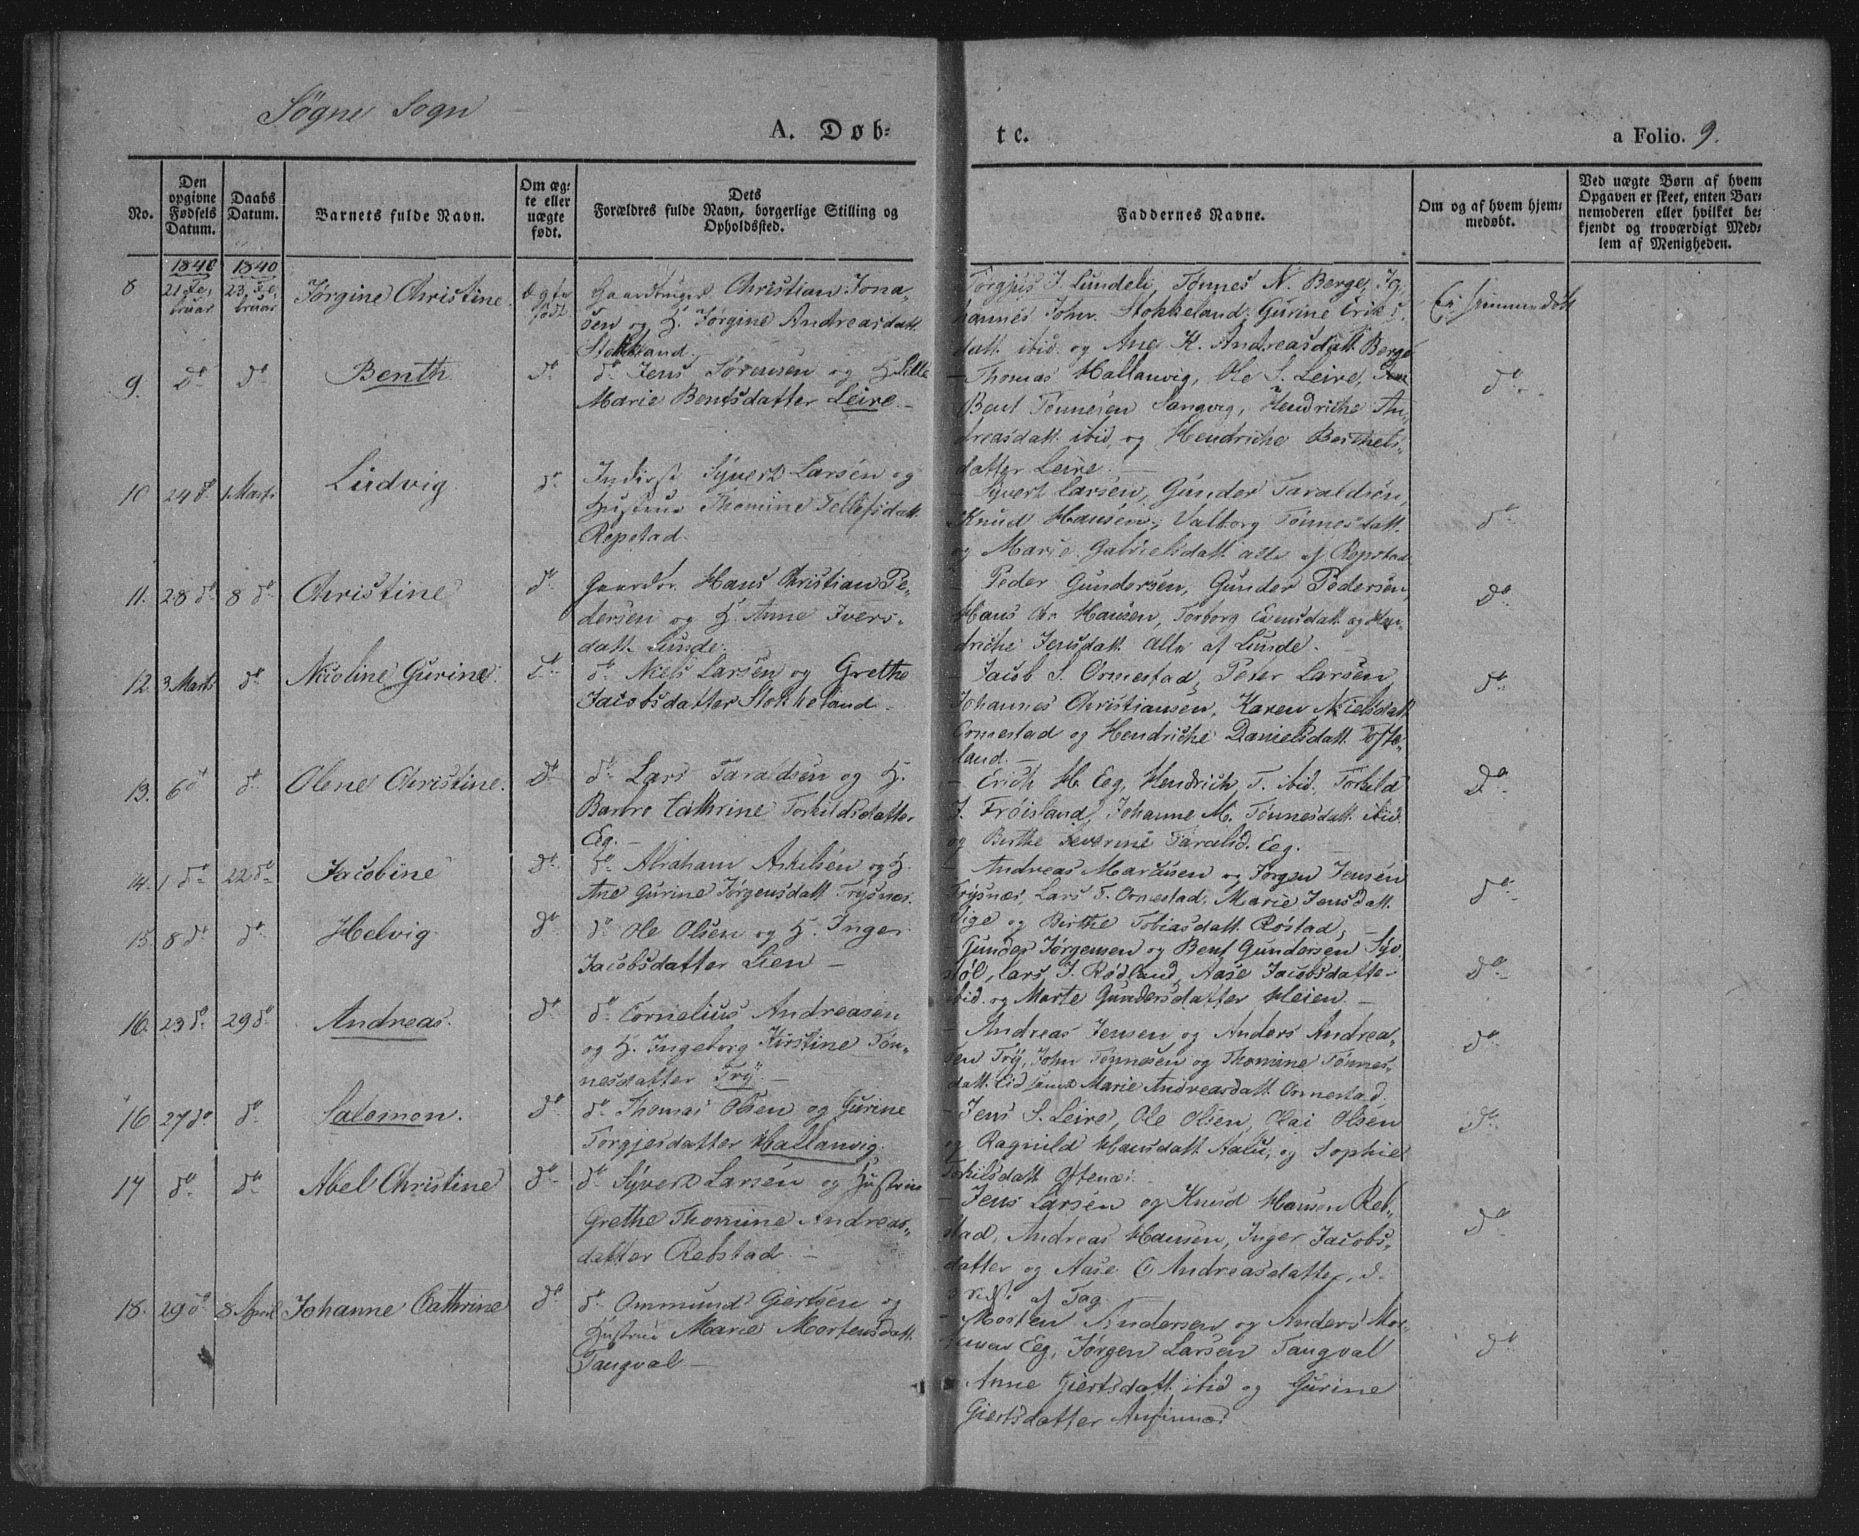 Søgne Sogn
A. Døb-
te.
a Folio. 9.
No.
Den opgivne Fødsels Datum.
Daabs Datum.
Barnets fulde Navn.
Om ægte eller uægte født.
Dets Forældres fulde Navn, borgerlige Stilling og Opholdssted.
Faddernes Navne.
Om og af hvem hjemmedøbt.
Ved uægte Børn af hvem Opgaven er skeet, enten Barnemoderen eller hvilket bekjendt og troværdigt Medlem af Menigheden.
1840 1840
8 21 Fe- 23 Fe- Jørgine Christine. ægte
bruar bruar født
Gaardbruger Christian Jona-
sen og H. Jørgine Andreasdatt.
Stokkeland.
J. Lundeli, Tønnes N. Berge,
hannes John. Stokkeland, Gurine Eriks-
datt. ibid. og Ane K. Andreasdatt. Berge
Ei hjemmedøbt
9. do do Benth do
do Jens Sørensen og H. Sille
Marie Bentsdatter Leire.
Thomas Hallanvig, Ole S. Leire,
Bent Tønnesen Langvig, Hendriche An-
dreasdatt. ibid. og Hendriche Berthels-
datter Leire.
do
10 24 do 1 Marts Ludvig do
Inderst Syvert Larsen og
Hustrue Thomine Tellefsdatt.
Repstad.
Syvert Larsen, Gunder Taraldsen,
Knud Hansen, Valborg Tønnesdatt.
og Marie Gabrielsdatt. alle af Repstad
do
11. 28 do 8 do Christine do
Gaardbr. Hans Christian Pe-
dersen og H. Anne Ivers-
datt. Lunde.
Peder Gundersen, Gunder Pedersen,
Hans Chr. Hansen, Torborg Evensdatt og Hen-
driche Jensdatt. Alle af Lunde.
do
12. 3 Marts do Nicoline Gurine. do
do Niels Larsen og Grethe
Jacobsdatter Stokkeland.
Jacob S. Ormestad, Peter Larsen,
Johannes Christiansen, Karen Nielsdatt.
Ormestad og Hendriche Danielsdatt. Tofte-
land.
do
13. 6 do do Olene Christine. do
do Lars Taraldsen og H.
Barbro Cathrine Torkildsdatter
Eeg.
Erich H. Eeg, Hendrich T. ibid. Torkild
J. Frøisland, Johanne M. Tønnesdatt. ibid.
og Birthe Severine Taralsd. Eeg.
do
14. 1 do 22 do Jacobine do
do Abraham Askilsen og H.
Ane Gurine Jørgensdatt. Trysnæs.
Andreas Marcusen og Jørgen Jensen
Trysnæs, Lars T. Ormestad, Marie Jensdatt.
Vige og Birthe Tobiasdatt. Røstad,
do
15. 8 do do Helvig. do
do Ole Olsen og H. Inger
Jacobsdatter Lien
Gunder Jørgensen og Bent Gundersen
Lars J. Rødland, Aase Jacobsdatter
ibid. og Marte Gundersdatter Heien.
do
16. 23 do 29 do Andreas. do
do Cornelius Andreasen
og H. Ingeborg Kirstine Tøn-
nesdatter Try.
Andreas Jensen og Anders Andrea-
sen Try, John Tønnesen og Thomine Tønnes-
datt. ibid samt Marie Andreasdatt. Ormestad.
do
16 27 do do Salomon. do
do Thomas Olsen og Gurine
Torgjersdatter Hallanvig.
Jens S. Leire, Ole Olsen, Olai Olsen
og Ragnild Hansdatt. Aalu, og Sophie
Torkilsdatt.
do
17 do do Abel Christine do
do Syvert Larsen og Hustrue
Grethe Thomine Andreas-
datter Rebstad.
Jens Larsen og Knud Hansen Reb-
stad, Andreas Hansen, Inger Jacobs-
datter og Aase C. Andreasdatter,
af Tag.
do
18. 29 do 8 April Johanne Cathrine do
do Ommund Giertsen og
Hustrue Marie Mortensdatt.
Tangval
Morten Andersen og Anders Mor-
tensen Eeg, Jørgen Larsen Tangval
Anne Giertsdatt. ibid og Gurine
Giertsdatter
do